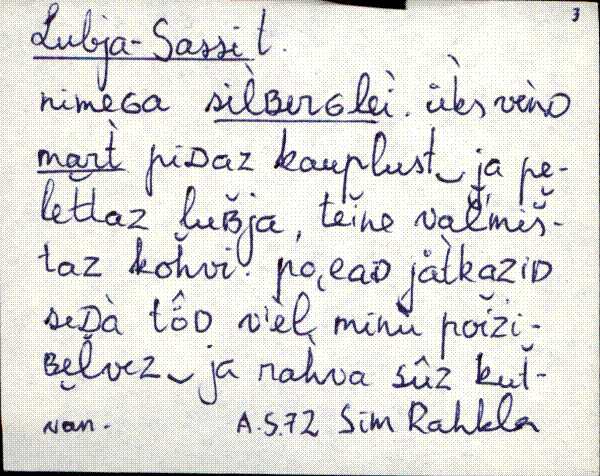 3
Lubja-Sassi t.
nimega sìlBerGleì. üks veno
mart piDaz kauplust ja pe-
lettaz luBja, teine valmis-
taz kohvi. poead jàtkaziD
seDà tôD viel minù poizi-
Belvez ja rahva sûz kut-
van. A.S.72 Sim Rahkla